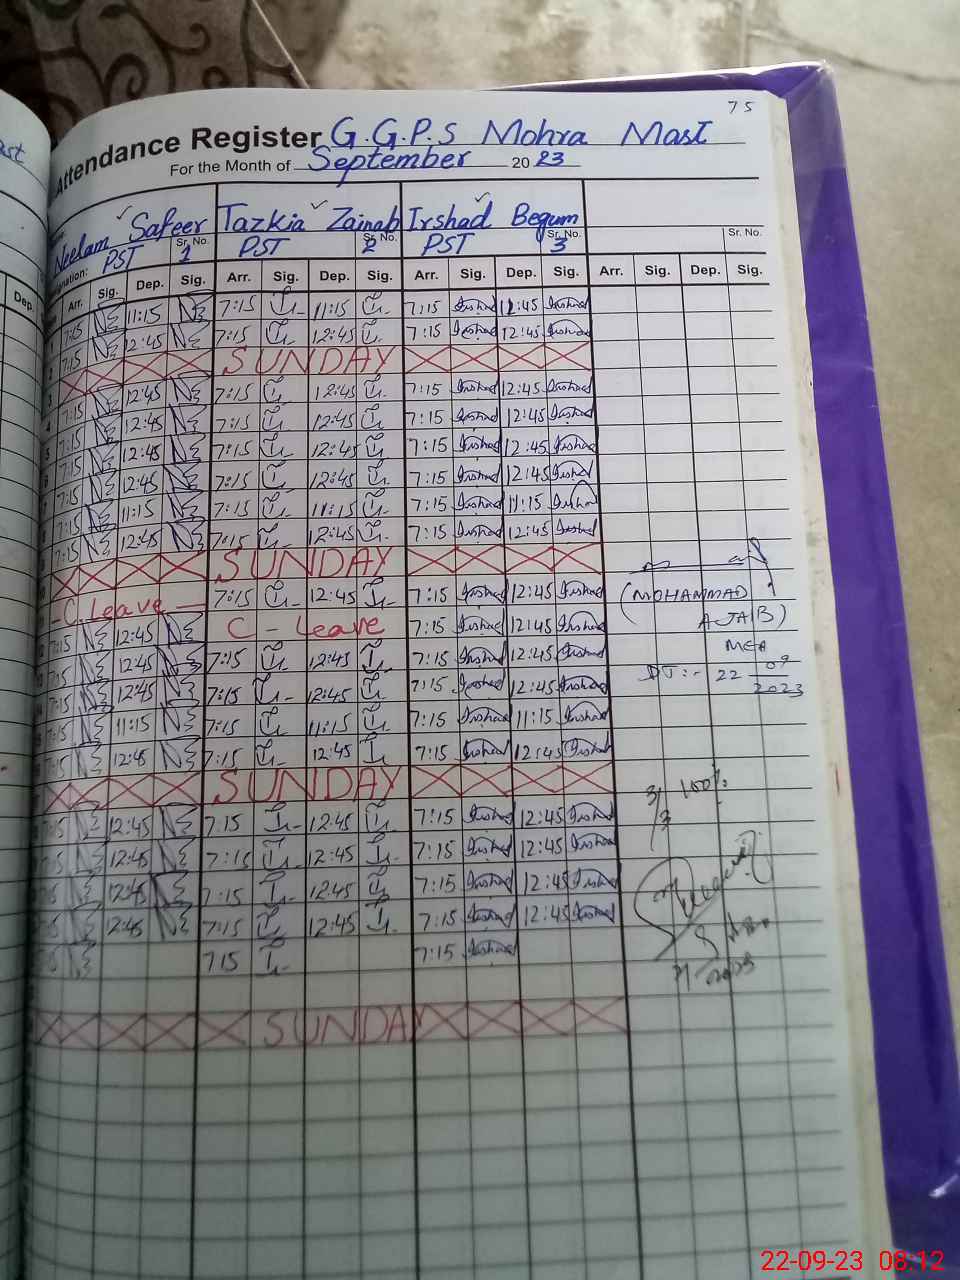 75
Attendance Register G.G.P.S Mohra Mast
For the Month of September 2023
Neelam Safeer Tazkia Zainab Irshad Begum
PST Sr. No. 1 PST Sr. No. 2 PST Sr. No. 3 Sr. No.
Arr. Sig. Dep. Sig. Arr. Sig. Dep. Sig. Arr. Sig. Dep. Sig. Arr. Sig. Dep. Sig.
7:15 11:15 7:15 11:15 7:15 Irshad 12:45 Irshad
7:15 12:45 7:15 12:45 7:15 Irshad 12:45 Irshad
SUNDAY
7:15 12:45 7:15 12:45 7:15 Irshad 12:45 Irshad
7:15 12:45 7:15 12:45 7:15 Irshad 12:45 Irshad
7:15 12:45 7:15 12:45 7:15 Irshad 12:45 Irshad
7:15 12:45 7:15 12:45 7:15 Irshad 12:45 Irshad
7:15 11:15 7:15 11:15 7:15 Irshad 11:15 Irshad
7:15 12:45 7:15 12:45 7:15 Irshad 12:45 Irshad
SUNDAY
C. Leave 7:15 12:45 7:15 Irshad 12:45 Irshad
7:15 12:45 C - Leave 7:15 Irshad 12:45 Irshad
7:15 12:45 7:15 12:45 7:15 Irshad 12:45 Irshad
7:15 12:45 7:15 12:45 7:15 Irshad 12:45 Irshad
7:15 11:15 7:15 11:15 7:15 Irshad 11:15 Irshad
7:15 12:45 7:15 12:45 7:15 Irshad 12:45 Irshad
SUNDAY
7:15 12:45 7:15 12:45 7:15 Irshad 12:45 Irshad
12:45 7:15 12:45 7:15 Irshad 12:45 Irshad
12:45 7:15 12:45 7:15 Irshad 12:45 Irshad
12:45 7:15 12:45 7:15 Irshad 12:45 Irshad
7 15 7:15 Irshad
SUNDAY
(MOHAMMAD
AJAIB)
MEA
DT:- 22 09
2023
3/3 100%
22-09-23 08:12